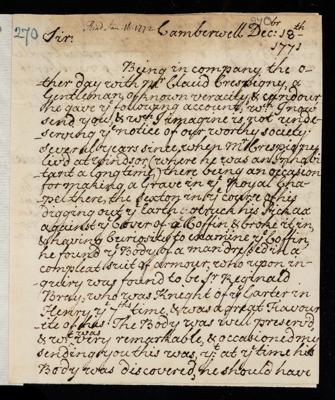 270
Read Jan. 16. 1772
Sir. Camberwell Dec: 18th
1771
Being in company the o-
ther day with Mr. Claud Crespigny, a
Gentleman of known veracity, & candour
he gave ye following account, wch I now
send you, & wch I imagine is not unde-
serving ye notice of our worthy society
severall years since, when Mr Crespigny
liv'd at Windsor (where he was an Inhabi-
tant a long time,) there being an occasion
for making a Grave in ye Royal Cha-
pel there, the Sexton in ye course of his
digging out ye Earth, struck his Pickax
against ye Cover of a Coffin, & broke it in,
& having Curiosity to examine ye Coffin,
he found ye Body of a man dressed in a
compleat suit of armour, who upon in-
quiry was found to be Sr. Reginald
Bray, who was Knight of ye Garter in
Henry ye 7ths time, & was a great Favour-
ite of his. The Body was well preserv'd,
& wt was very remarkable, & occasioned my
sending you this was, yt. at ye time his
Body was discovered, he should have